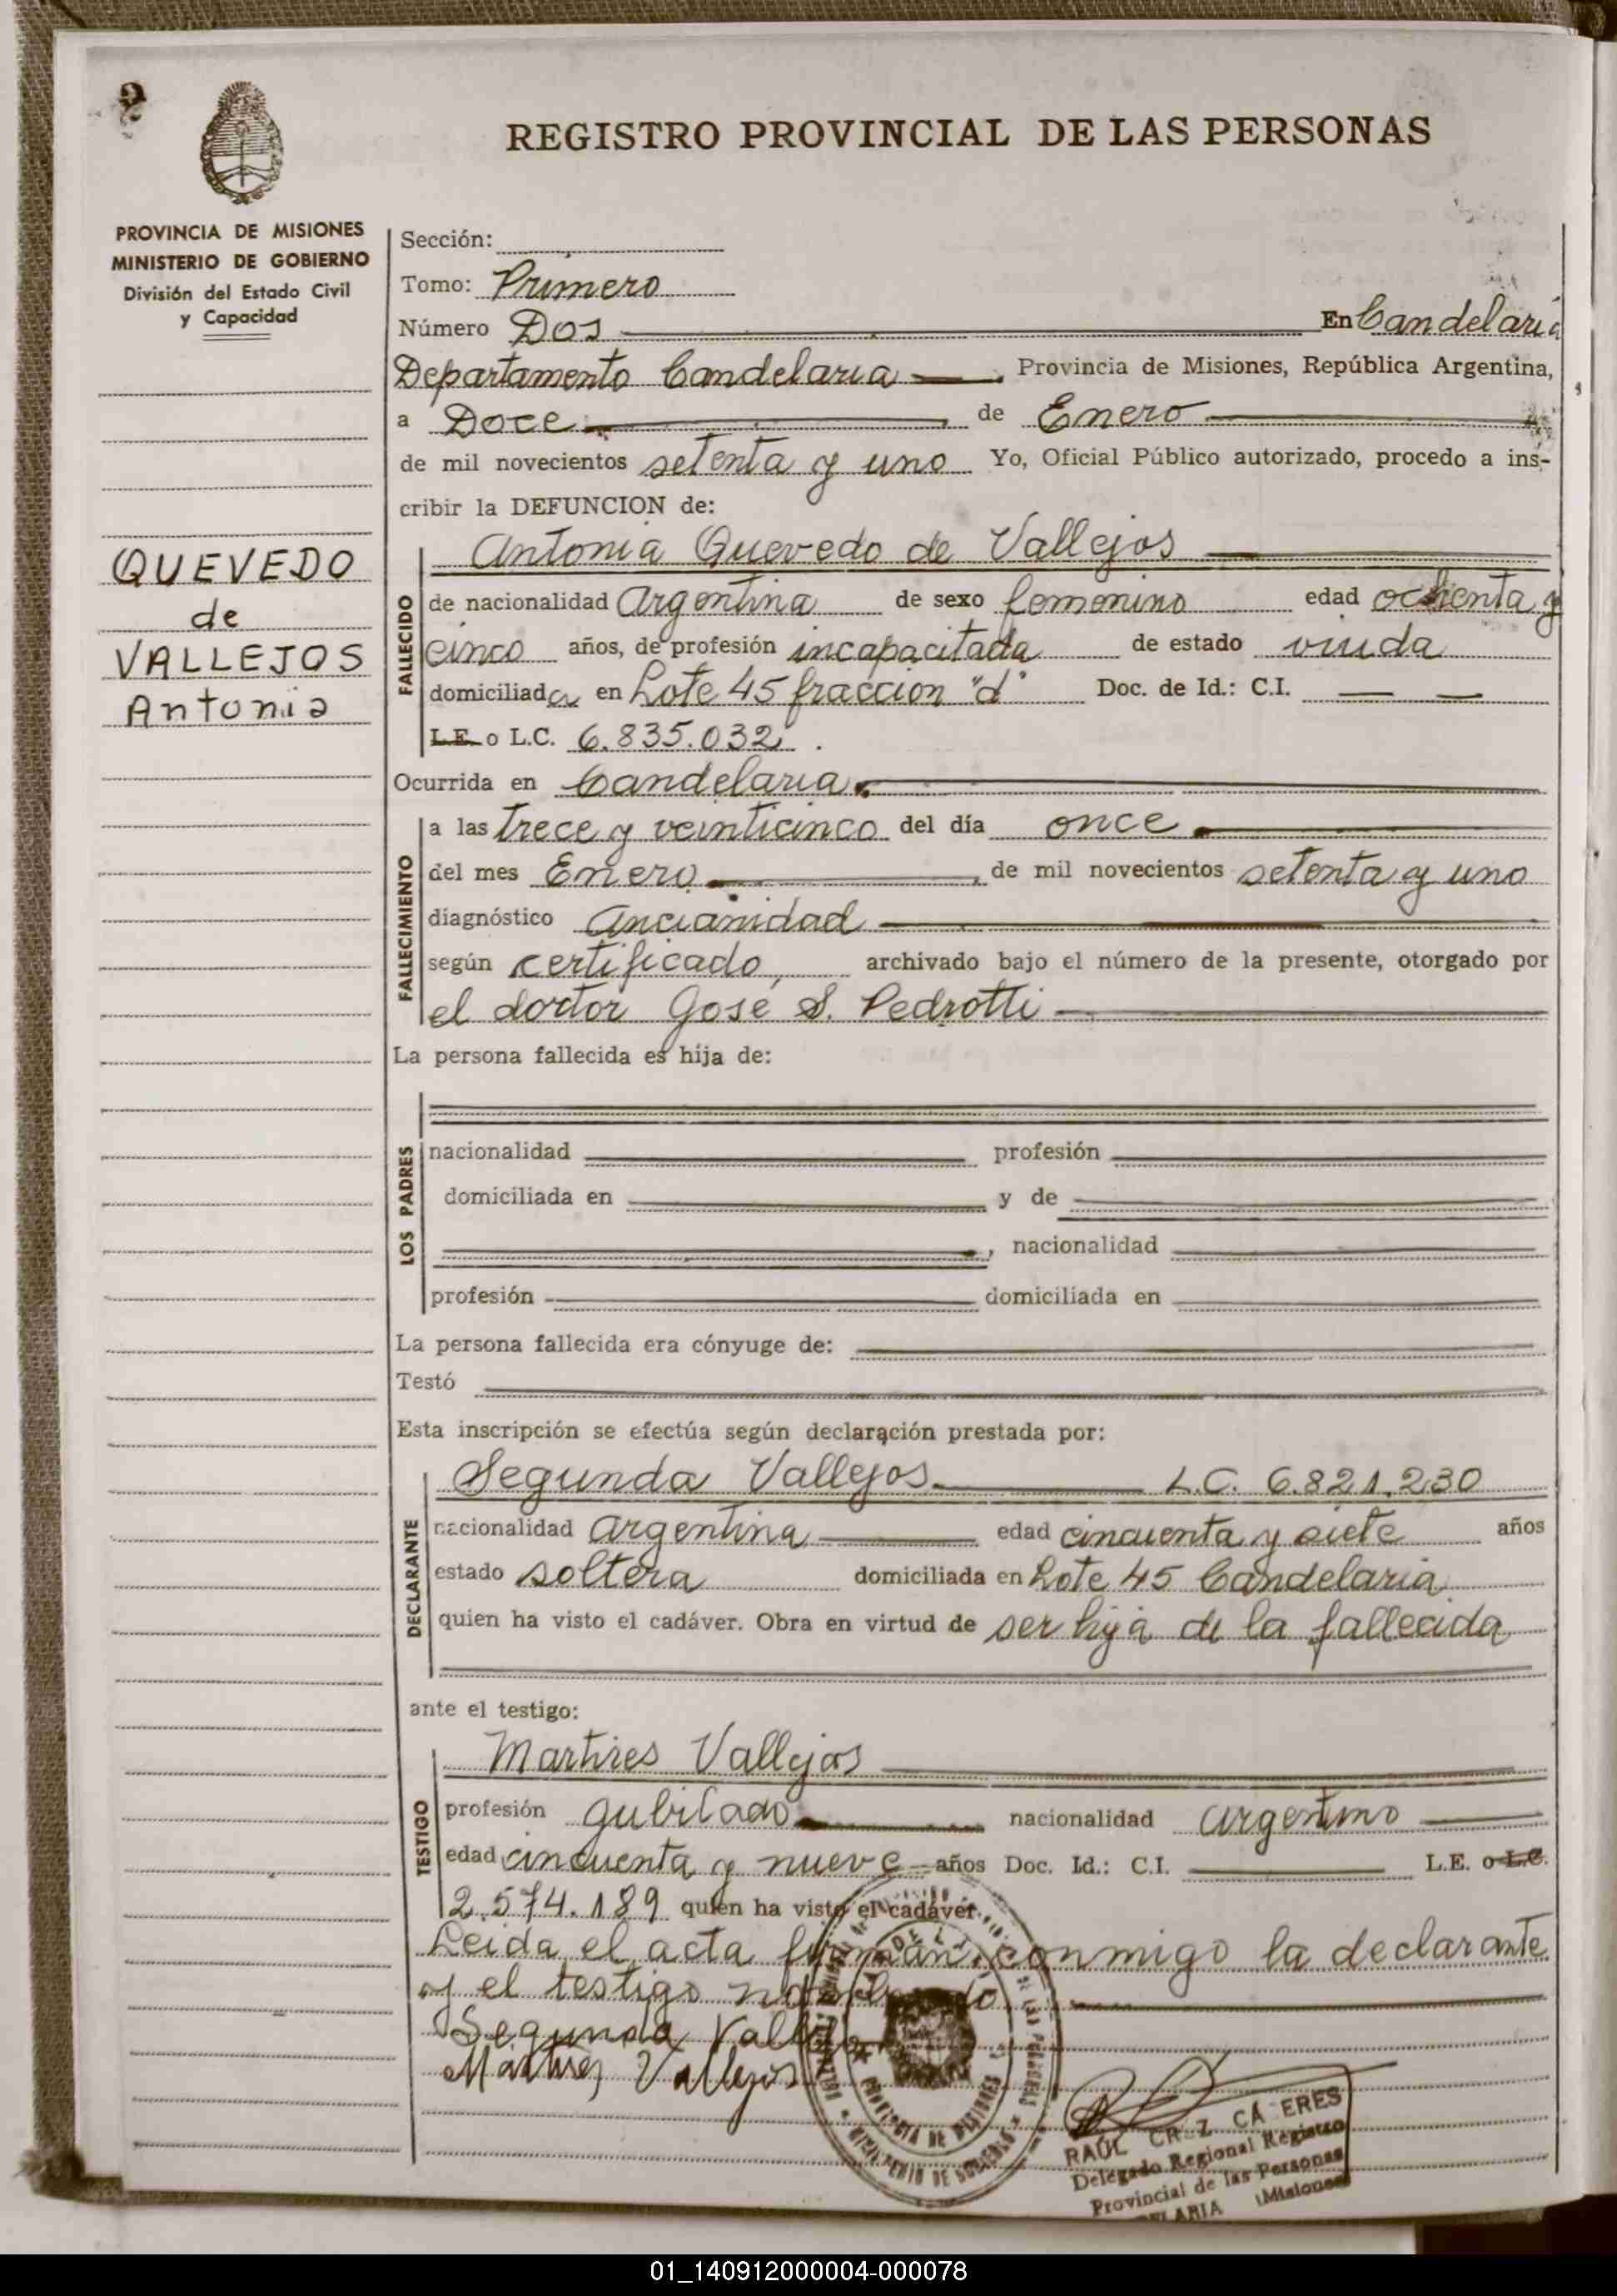 REGISTRO PROVINCIAL DE LAS PERSONAS
PROVINCIA DE MISIONES
MINISTERIO DE GOBIERNO
División del Estado Civil
y Capacidad
QUEVEDO
de
VALLEJOS
Antonia
Sección:
Tomo: Primero
Número Dos En Candelaria
Departamento Candelaria Provincia de Misiones, República Argentina,
a Doce de Enero
de mil novecientos setenta y uno Yo, Oficial Público autorizado, procedo a ins-
cribir la DEFUNCION de:
FALLECIDO
Antonia Quevedo de Vallejos
de nacionalidad Argentina de sexo femenino edad ochenta y
cinco años, de profesión incapacitada de estado viuda
domiciliada en Lote 45 fraccion "d" Doc. de Id.: C.I.
L.E. o L.C. 6.835.032.
Ocurrida en Candelaria
FALLECIMIENTO
a las trece y veinticinco del día once
del mes Enero, de mil novecientos setenta y uno
diagnóstico Ancianidad
según certificado, archivado bajo el número de la presente, otorgado por
el doctor José S. Pedrotti
La persona fallecida es hija de:
LOS PADRES
nacionalidad profesión
domiciliada en y de
, nacionalidad
profesión domiciliada en
La persona fallecida era cónyuge de:
Testó
Esta inscripción se efectúa según declaración prestada por:
DECLARANTE
Segunda Vallejos L.C. 6.821.230
nacionalidad argentina edad cincuenta y siete años
estado soltera domiciliada en Lote 45 Candelaria
quien ha visto el cadáver. Obra en virtud de ser hija de la fallecida
ante el testigo:
TESTIGO
Martires Vallejos
profesión jubilado nacionalidad argentino
edad cincuenta y nueve años Doc. Id.: C.I. L.E. o L.C.
2.574.189 quien ha visto el cadáver.
Leida el acta firman conmigo la declarante
y el testigo
Segunda Vallejos
Martires Vallejos
PROVINCIA DE MISIONES
MINISTERIO DE GOBIERNO
RAUL CRUZ CACERES
Delegado Regional Registro
Provincial de las Personas
(Misiones)
01_140912000004-000078